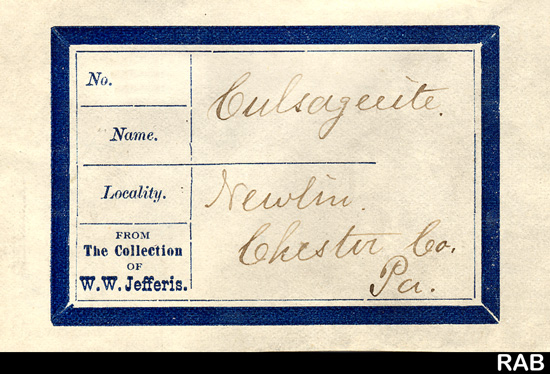 No.
Culsageeite.
Name.
Locality.
Newlin.
Chester Co.
Pa.
FROM
The Collection
OF
W.W. Jefferis.
RAB